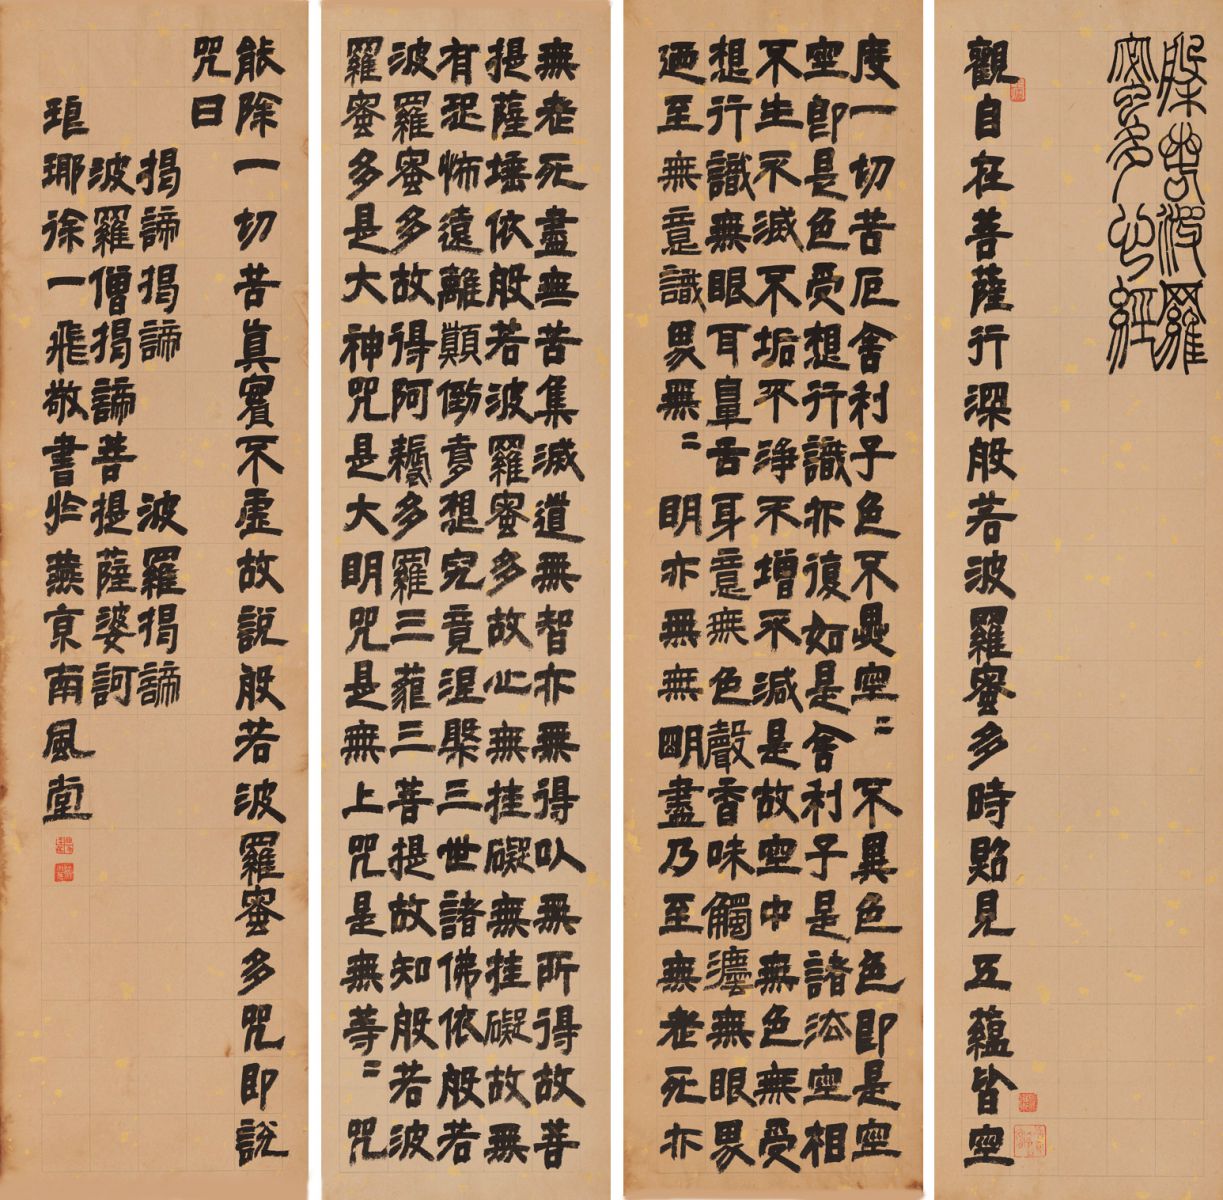 般若波羅
蜜多心經
觀自在菩薩行深般若波羅蜜多時照見五蘊皆空
度一切苦厄舍利子色不異空〻不異色色即是空
空即是色受想行識亦復如是舍利子是諸法空相
不生不滅不垢不淨不增不減是故空中無色無受
想行識無眼耳鼻舌身意無色聲香味觸法無眼界
廼至無意識界無〻明亦無無明盡乃至無老死亦
無老死盡無苦集滅道無智亦無得以無所得故菩
提薩埵依般若波羅蜜多故心無挂礙無挂礙故無
有恐怖遠離顛倒夢想究竟涅槃三世諸佛依般若
波羅蜜多故得阿耨多羅三藐三菩提故知般若波
羅蜜多是大神咒是大明咒是無上咒是無等〻咒
能除一切苦真實不虛故說般若波羅蜜多咒即說
咒曰
揭諦揭諦 波羅揭諦
波羅僧揭諦菩提薩婆訶
琅琊徐一飛敬書於燕京南風堂